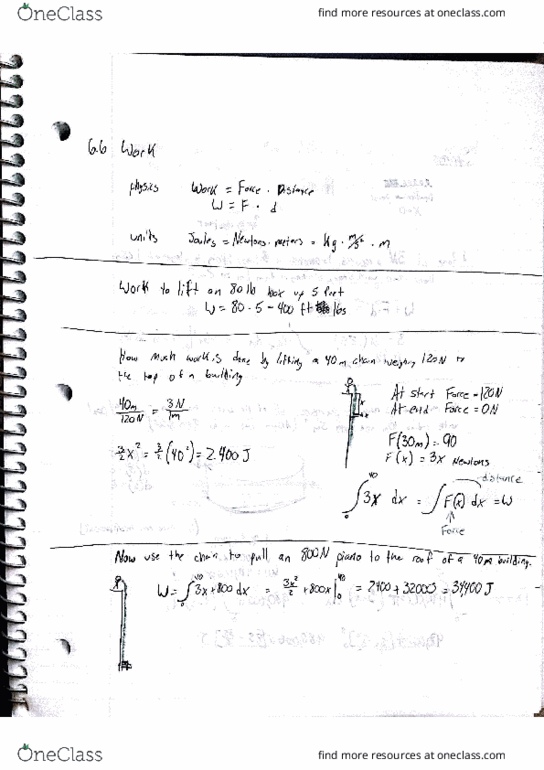 OneClass
find more resources at oneclass.com
6.6 Work
physics Work = Force · Distance
W = F · d
units Joules = Newtons · meters = kg · m/s² · m
Work to lift an 80 lb box up 5 feet
W = 80 · 5 - 400 ft lbs
How much work is done by lifting a 40m chain weighing 120 N to
the top of a building
40m/120N = 3N/1m
At start Force = 120N
At end Force = 0N
F(30m) = 90
F(x) = 3x Newtons
3/2 x² = 3/2 (40²) = 2,400 J
distance
∫₀⁴⁰ 3x dx = ∫ F(x) dx = W
Force
Now use the chain to pull an 800N piano to the roof of a 40m building.
W = ∫₀⁴⁰ 3x + 800 dx = 3x²/2 + 800x |₀⁴⁰ = 2400 + 32000 = 34400 J
OneClass
find more resources at oneclass.com